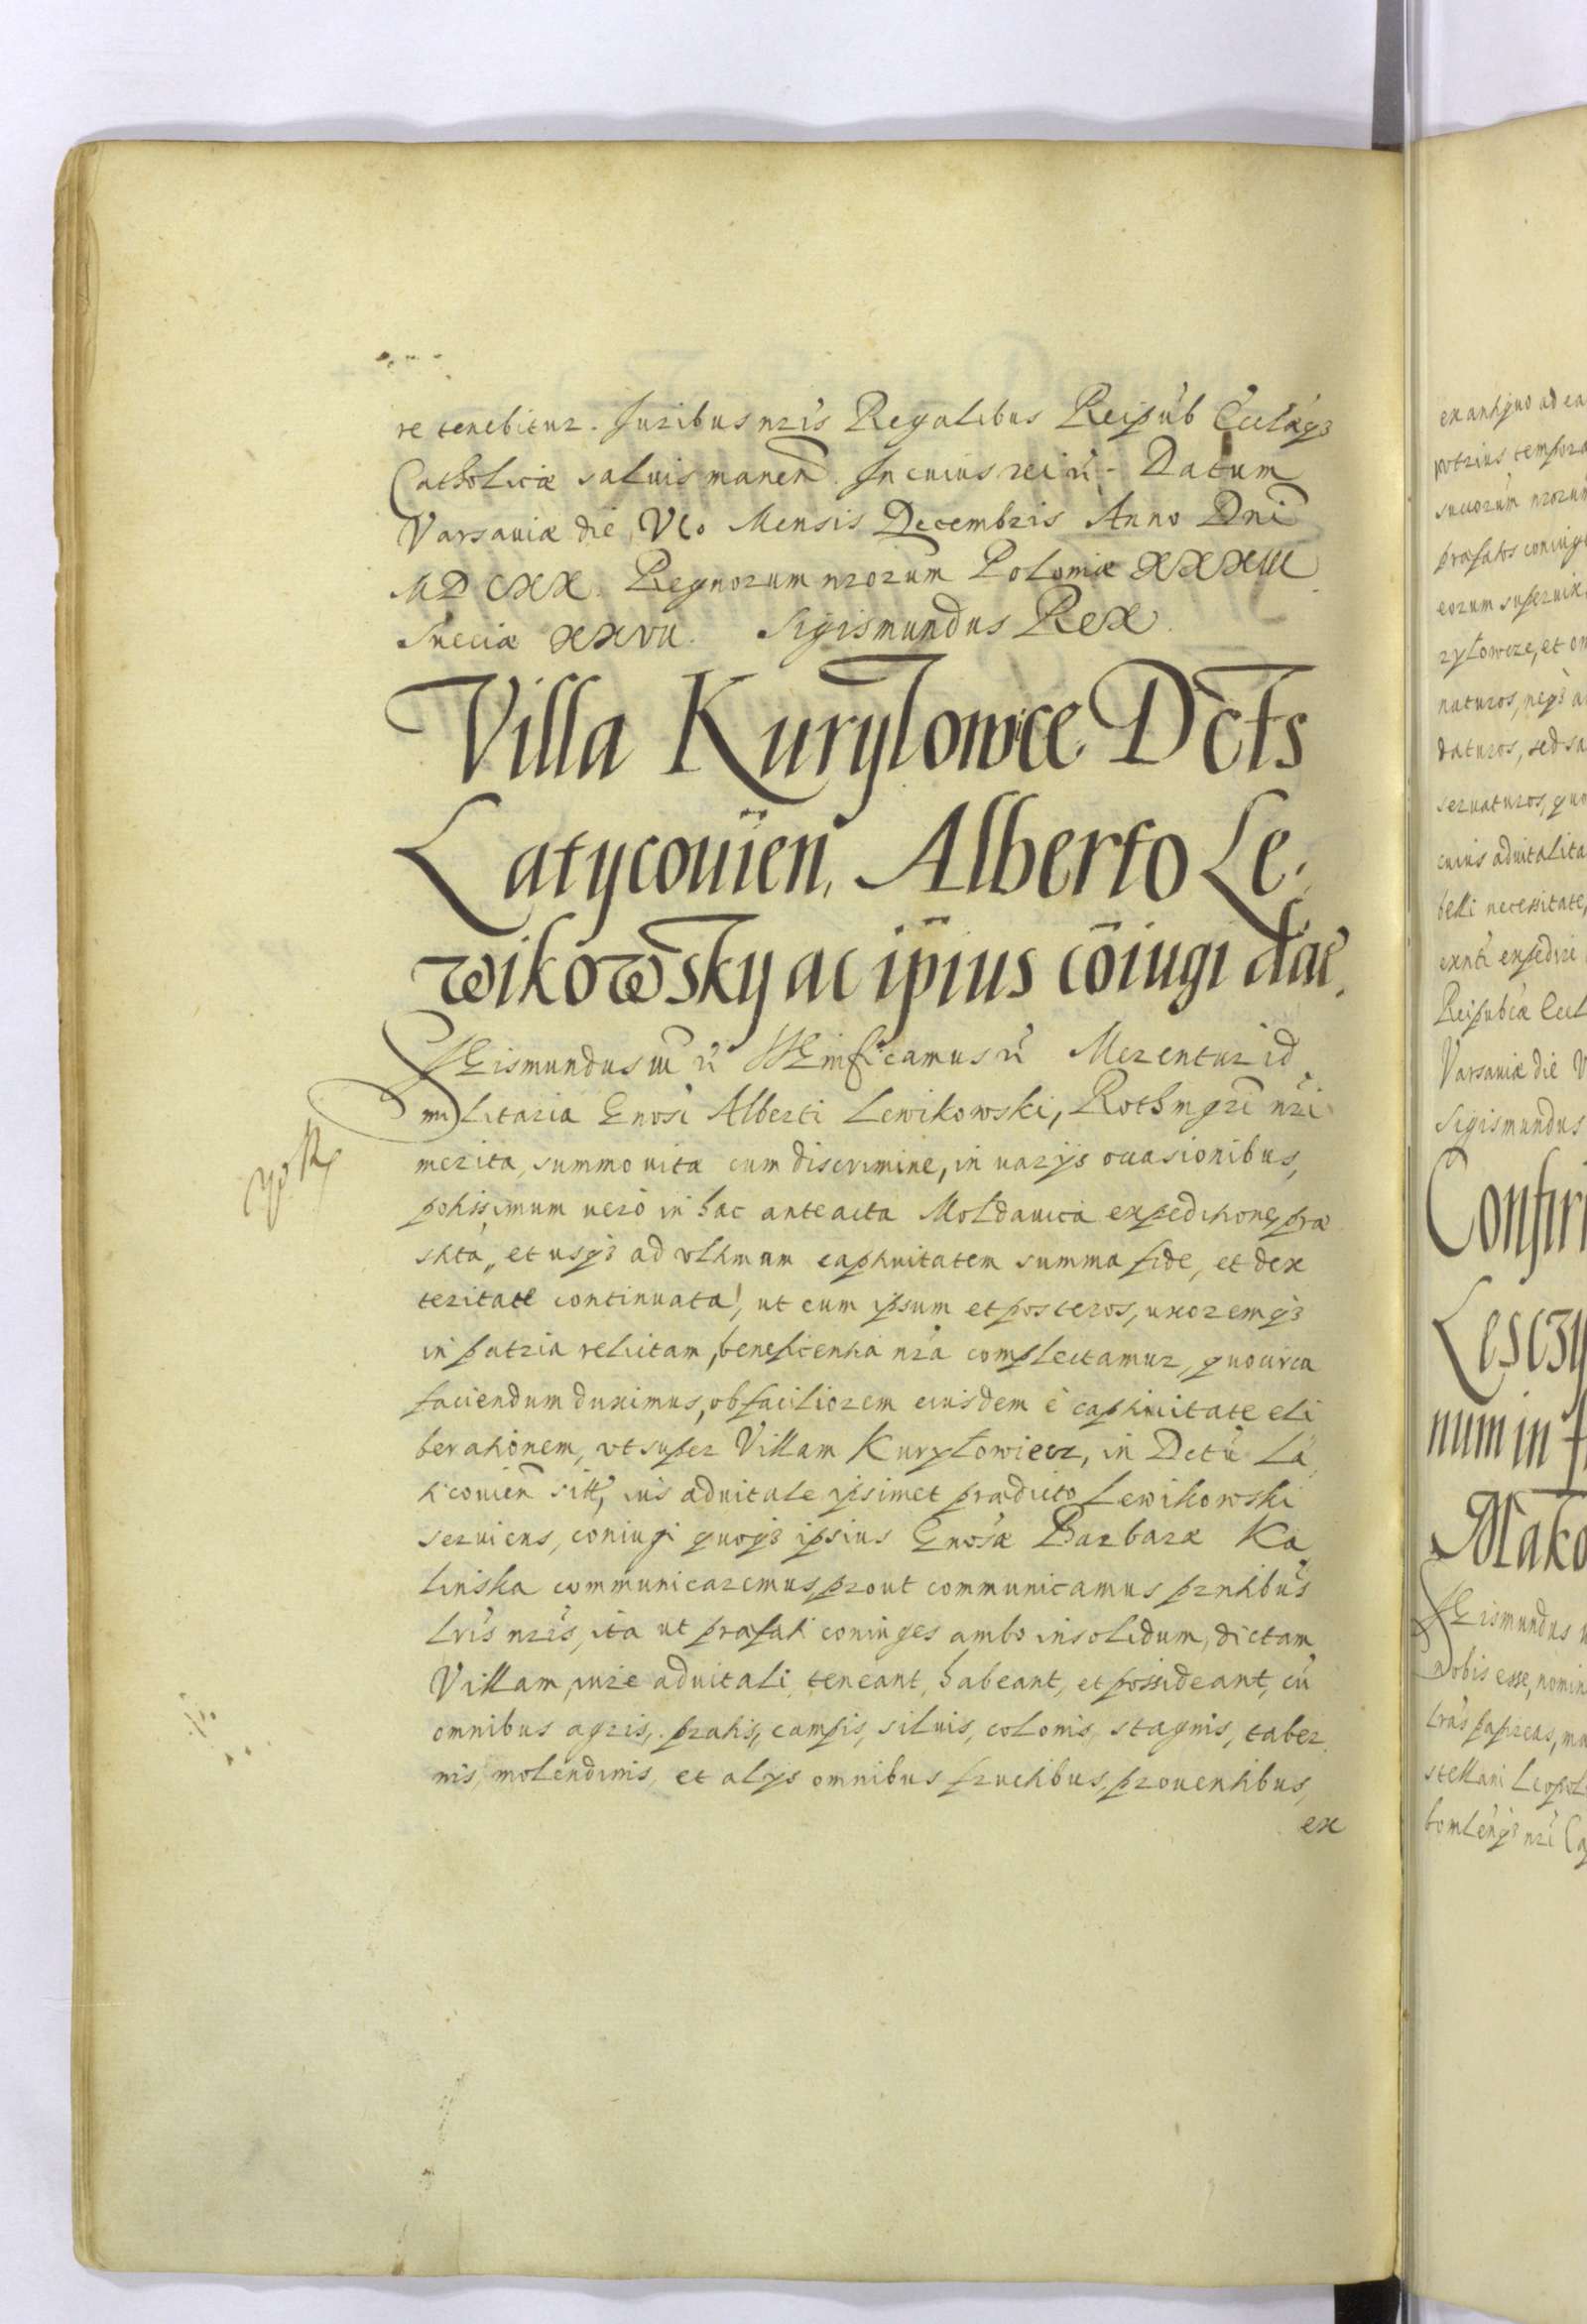 re tenebitur. Juribus nris Regalibus Reipub Ecclaeq3
Catholicæ saluis manen. In cuius rei ñ. Datum
Varsauiæ die VIo Mensis Decembris Anno Dni
MDCXX. Regnorum nrorum Poloniæ XXXIII
Sueciæ XXVII. Sigismundus Rex.
Villa Kuryłowce Dcts
Latycouien, Alberto Le,
wikowsky ac ipius cōiugi dat.
SGismundus III ñ SGnificamus ñ Merentur id
militaria Gnosi Alberti Lewikowski, Rothmgri nri
merita, summo uitæ cum discrimine, in uarijs occasionibus,
potissimum uerò in hac anteacta Moldauica expeditione, præ
stita, et usq3 ad ultimam captiuitatem summa fide, et dex
teritate continuata, ut eum ipsum et posteros, uxoremq3
in patria relictam, beneficentia nra complectamur, quocirca
faciendum duximus, ob faciliorem eiusdem è captiuitate eli
berationem, ut super Villam Kuryłowicz, in Dctu La
ticouien sitt, ius aduitale ipsimet prædicto Lewikowski
seruiens, coniugi quoq3 ipsius Gnosæ Barbaræ Ka
linska communicaremus, prout communicamus prntibus
lris nris, ita ut præfati coniuges ambo insolidum, dictam
Villam, iure aduitali, teneant, habeant, et possideant, cu
omnibus agris, pratis, campis, siluis, colonis, stagnis, taber
nis, molendinis, et alijs omnibus fructibus, prouentibus,
ex
ex antiquo ad ea
succorum nrorum
præfatos coniuge
ryłowcze, et om
naturos, neq3 a
daturos, sed sa
seruaturos, quo
cuius aduitalita
belli necessitate,
Reipubcæ Eccl
Varsauiæ die V
Sigismundus
Confir
Lesczy
num in f
Mako
SGismundus
nobis esse, nomin
lras papireas, ma
stellani Leopol